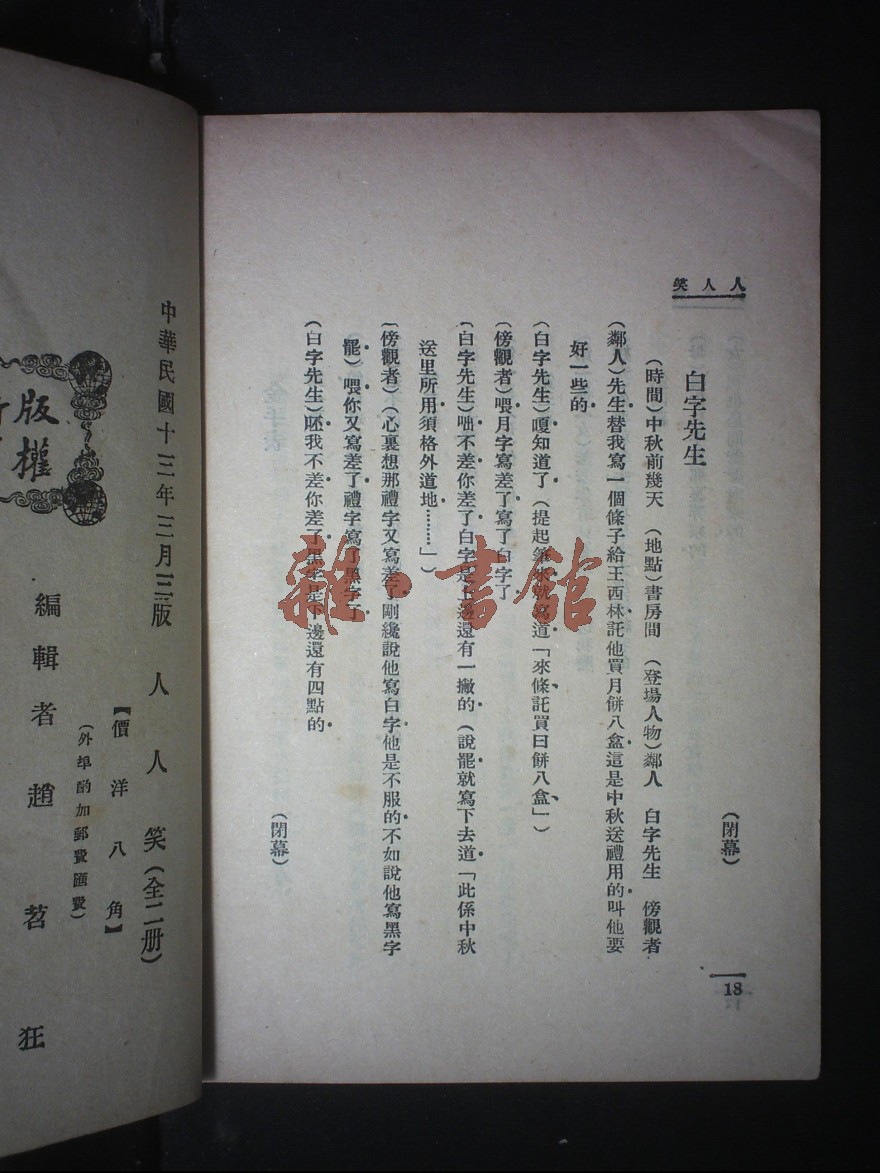 人人笑
(閉幕)
白字先生
(時間)中秋前幾天　(地點)書房間　(登場人物)鄰人　白字先生　傍觀者
(鄰人)先生替我寫一個條子給王西林託他買月餅八盒這是中秋送禮用的叫他要
好一些的
(白字先生)嗄知道了(提起筆來就寫道「來條託買曰餅八盒」)
(傍觀者)喂月字寫差了寫了白字了
(白字先生)咄不差你差了白字是上邊還有一撇的(說罷就寫下去道「此係中秋
送里所用須格外道地………」)
(傍觀者)(心裏想那禮字又寫差了剛纔說他寫白字他是不服的不如說他寫黑字
罷)喂你又寫差了禮字寫了黑字了
(白字先生)呸我不差你差了黑字是下邊還有四點的
(閉幕)
18
雜·書館
中華民國十三年三月三版
人人笑(全二册)
【價洋八角】
(外埠酌加郵費匯費)
編輯者趙苕狂
版權